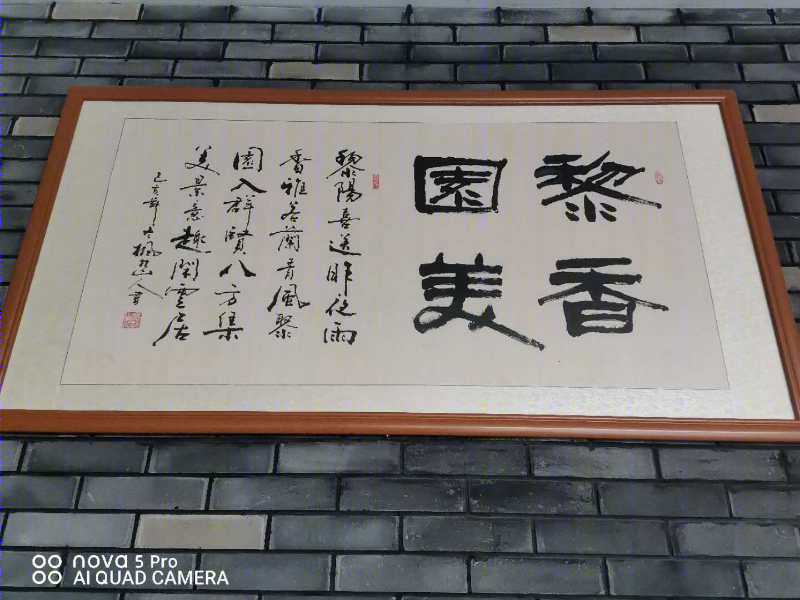 黎香
園美
黎陽喜送昨夜雨
香雅若蘭青風聚
園入群賢八方集
美景意趣閑雲居
己亥年 楓山人書
nova 5 Pro
AI QUAD CAMERA